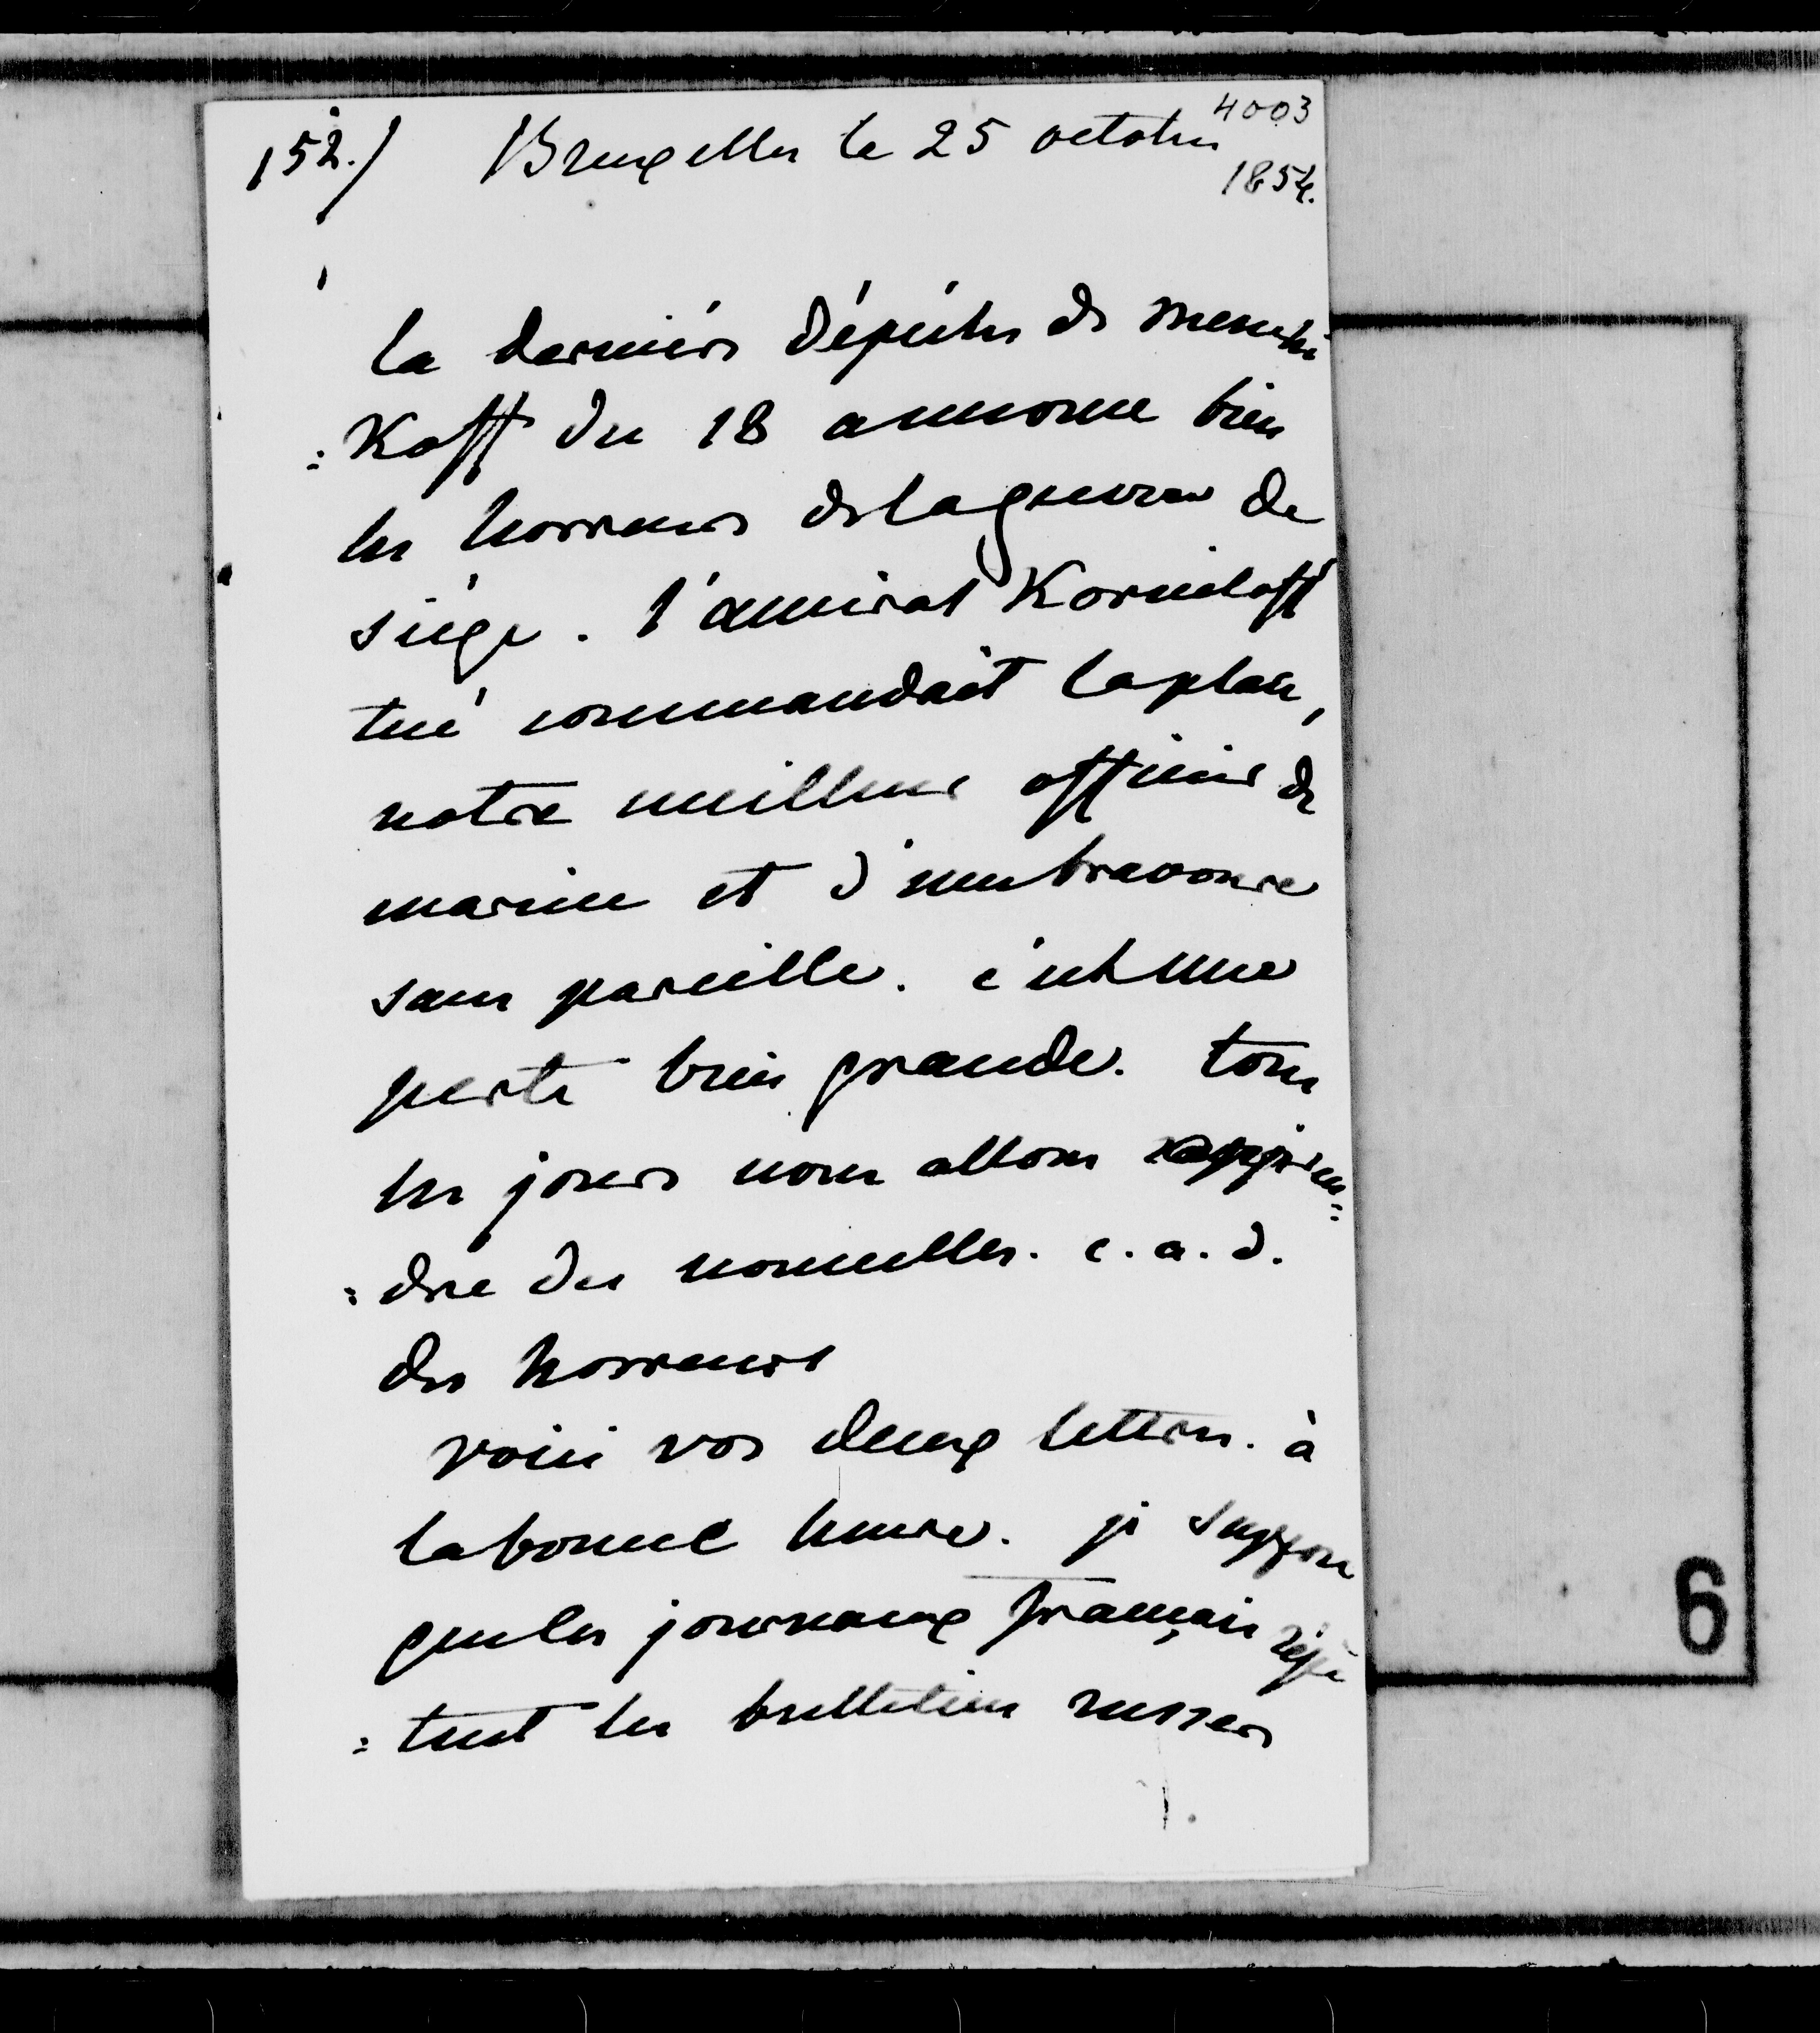 4003
152.) Bruxelles le 25 octobre
1854.
la dernière dépêche de Menschi
=Koff du 18 annonce bien
les horreurs de la guerre de
siège. l'amiral Korniloff
tué commandait la place,
notre meilleur officier de
marine et d'une bravoure
sans pareille. c'est une
perte bien grande. tous
les jours nous allons appren=
=dre des nouvelles. c.a.d.
des horreurs
voici vos deux lettres. à
la bonne heure. je suppose
que les journaux français répè
=tent les bulletins russes
6